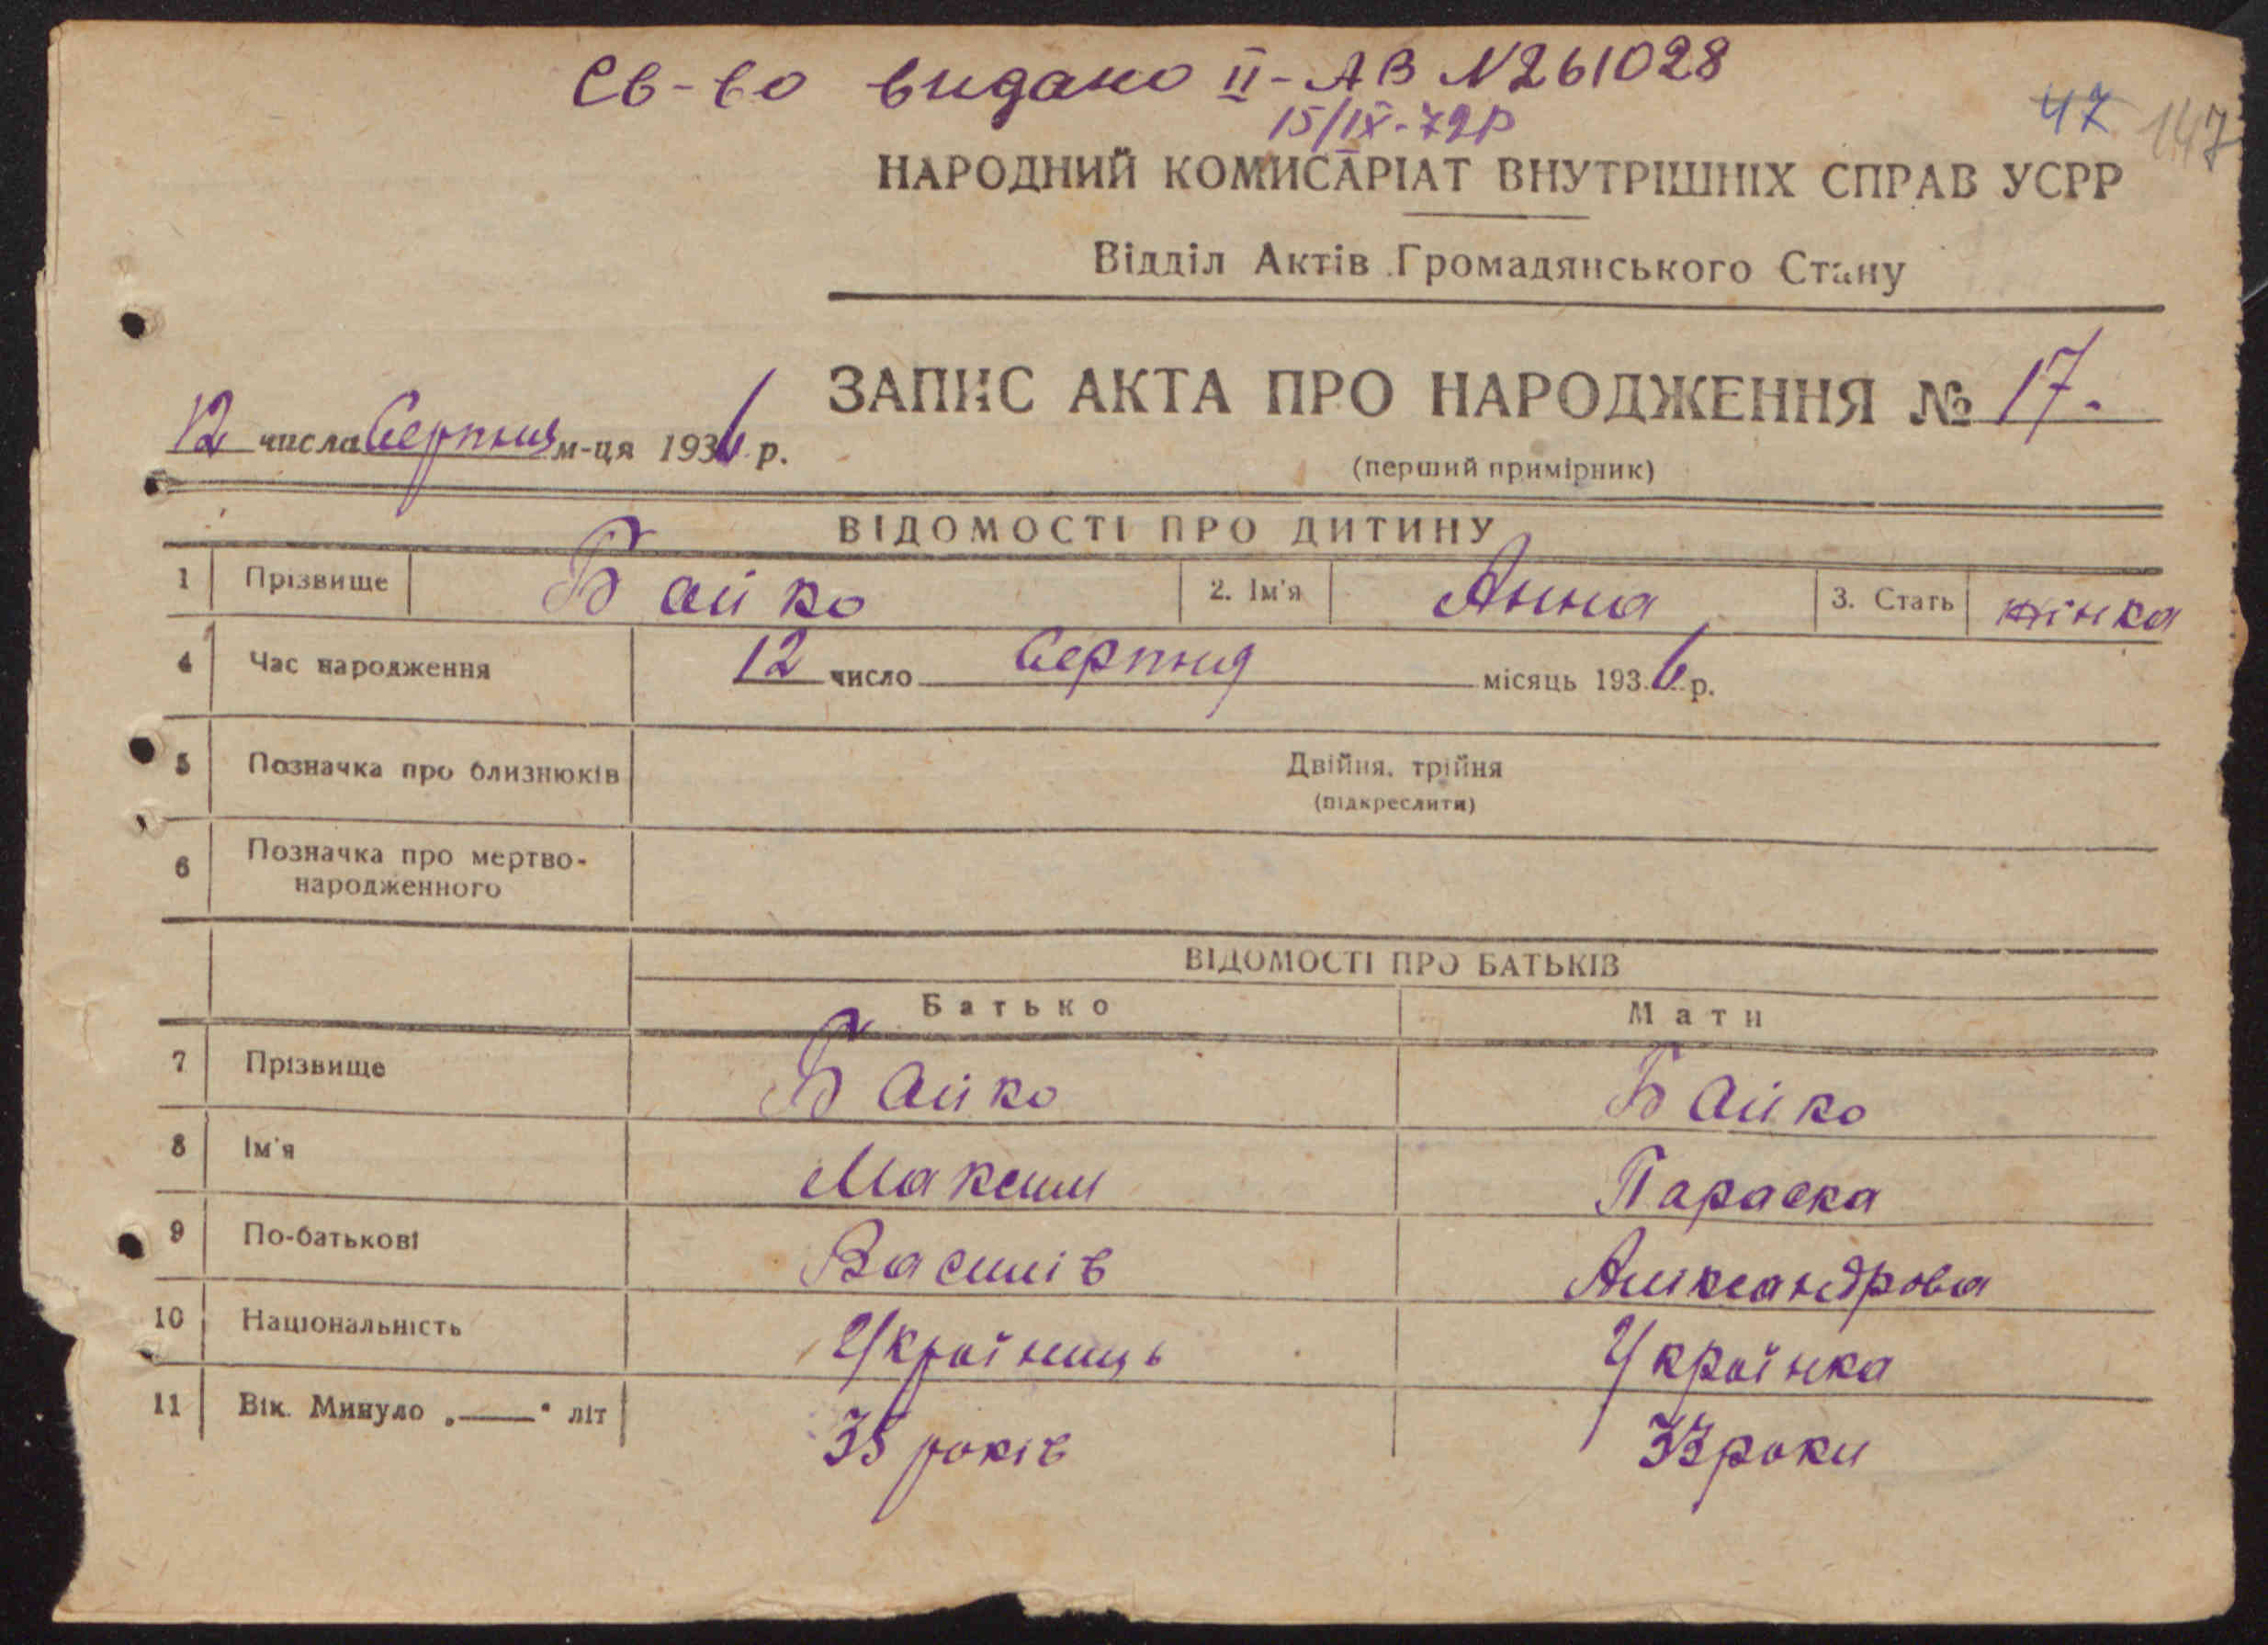 Св-во видано ІІ-АВ N261028
15/ІХ-72р
47 147
НАРОДНИЙ КОМИСАРІАТ ВНУТРІШНІХ СПРАВ УСРР
Відділ Актів Громадянського Стану
ЗАПИС АКТА ПРО НАРОДЖЕННЯ № 17.
12 числа Серпня м-ця 1936 р.
(перший примірник)
ВІДОМОСТІ ПРО ДИТИНУ
1 Прізвище Байко 2. Ім'я Анна 3. Стать жінка
4 Час народження 12 число Серпня місяць 1936 р.
5 Позначка про близнюків Двійня, трійня
(підкреслити)
6 Позначка про мертво-
народженного
ВІДОМОСТІ ПРО БАТЬКІВ
Батько Мати
7 Прізвище Байко Байко
8 Ім'я Максим Параска
9 По-батькові Василів Аліксандрова
10 Національність Українець Українка
11 Вік. Минуло „——" літ 35 років 33 роки